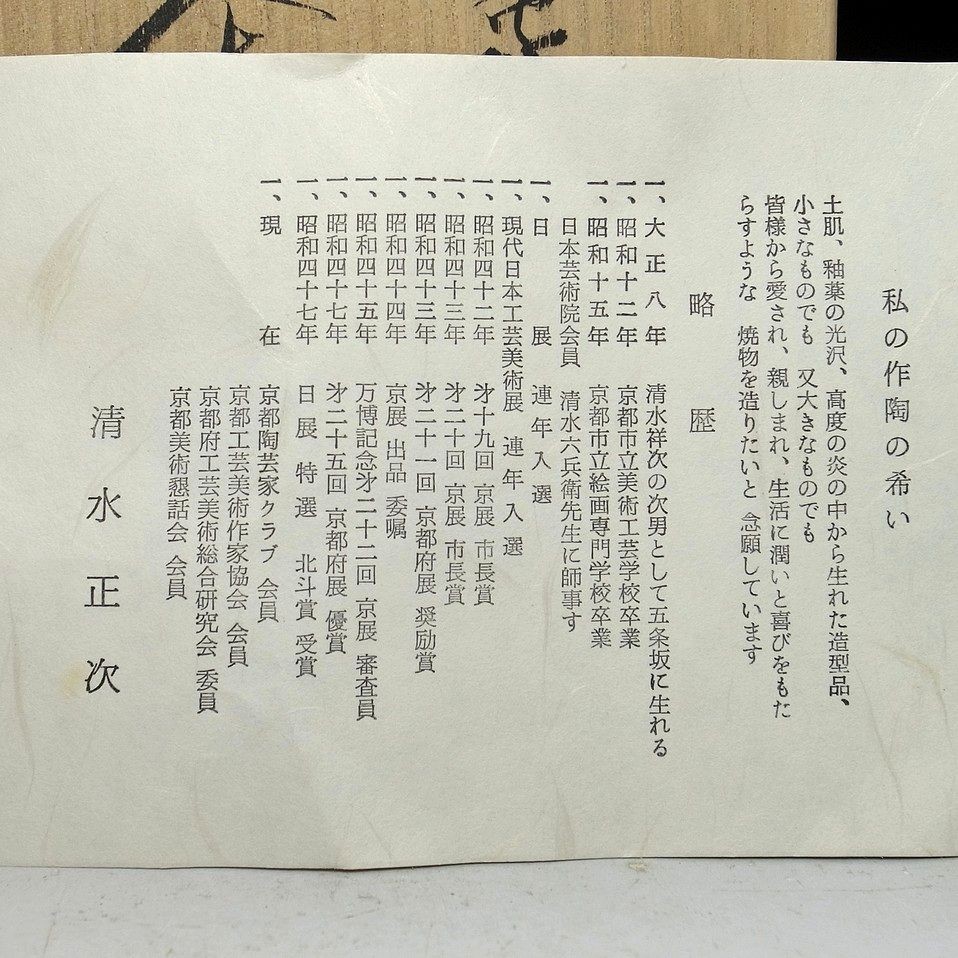 私の作陶の希い
土肌、釉薬の光沢、高度の炎の中から生れた造型品、
小さなものでも 又大きなものでも
皆様から愛され、親しまれ、生活に潤いと喜びをもた
らすような 焼物を造りたいと 念願しています
略歴
一、大正八年 清水祥次の次男として五条坂に生れる
一、昭和十二年 京都市立美術工芸学校卒業
一、昭和十五年 京都市立絵画専門学校卒業
日本芸術院会員 清水六兵衛先生に師事す
一、日展 連年入選
一、現代日本工芸美術展 連年入選
一、昭和四十二年 才十九回 京展 市長賞
一、昭和四十三年 才二十回 京展 市長賞
一、昭和四十三年 才二十一回 京都府展 奨励賞
一、昭和四十四年 京展 出品 委嘱
一、昭和四十五年 万博記念才二十二回 京展 審査員
一、昭和四十七年 才二十五回 京都府展 優賞
一、昭和四十七年 日展 特選 北斗賞 受賞
一、現在 京都陶芸家クラブ 会員
京都工芸美術作家協会 会員
京都府工芸美術総合研究会 委員
京都美術懇話会 会員
清水正次